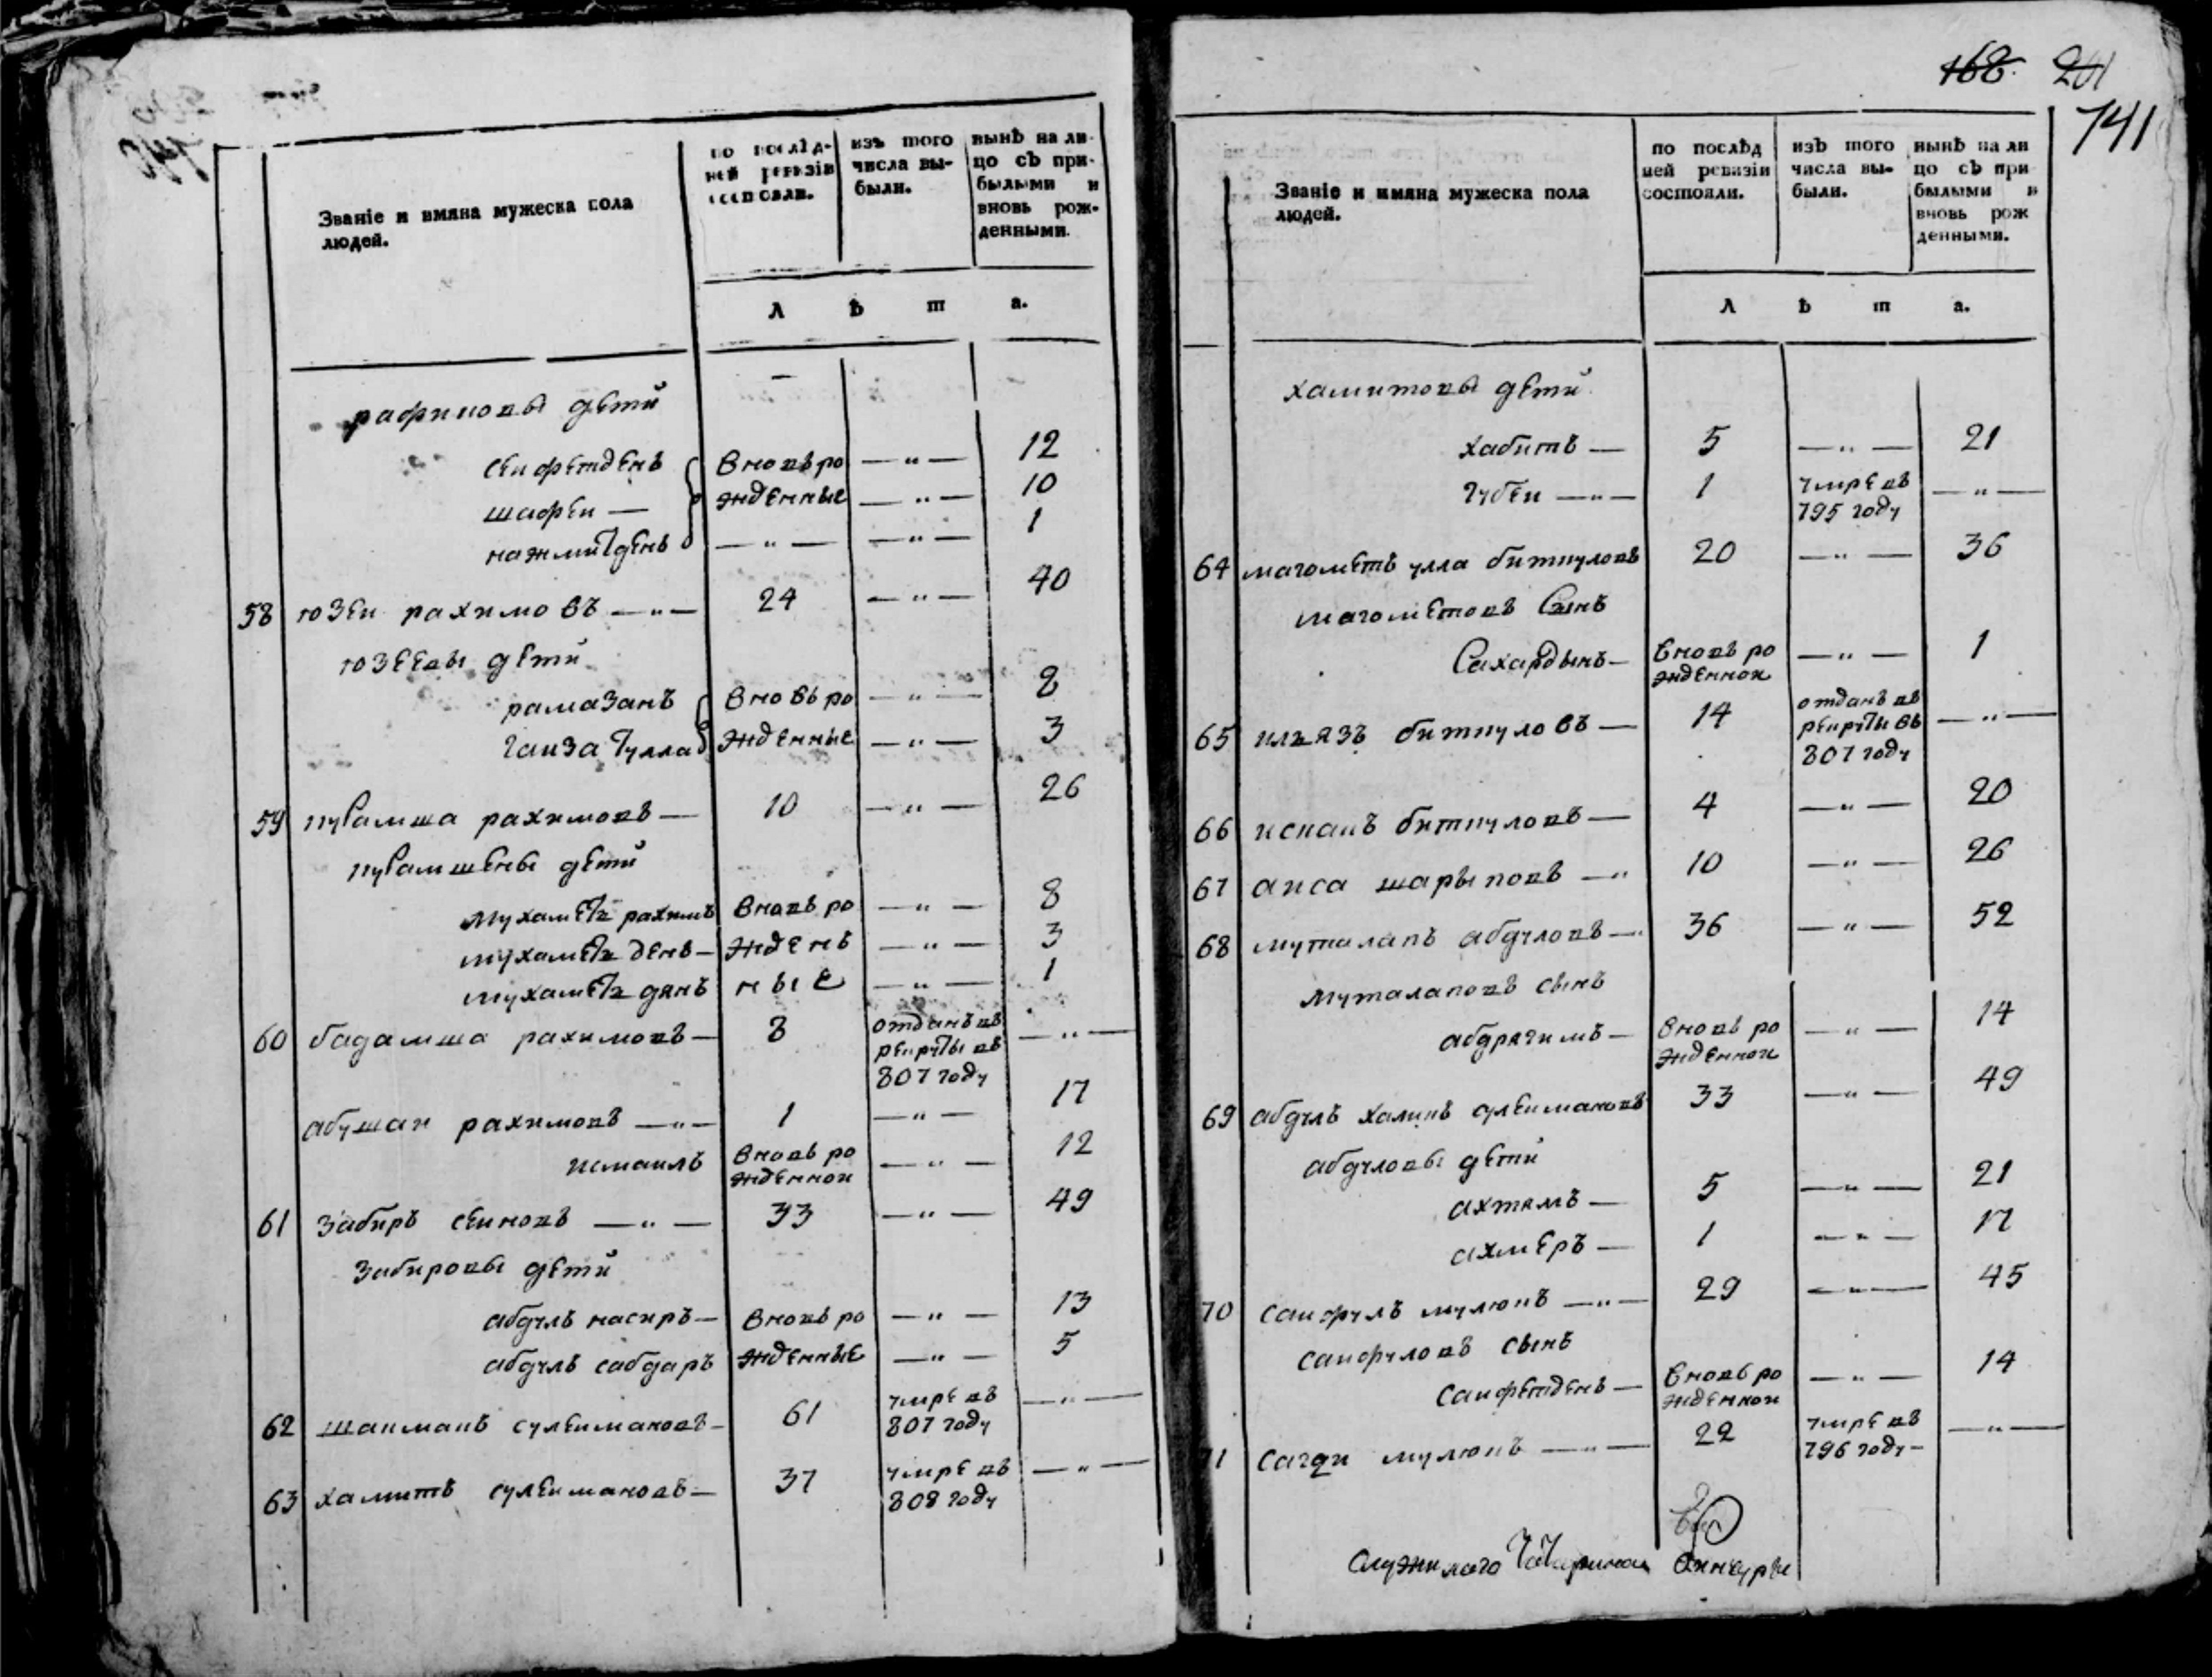 Званіе и имяна мужеска пола людей.
по послѣдней ревизіи состояли.
изъ того числа выбыли.
нынѣ на лицо съ прибылыми и вновь рожденными.
Л ѣ т а.
рафиковы дети
сеифетденъ вновьро — " — 12
шафеи — жденные — " — 10
нажмитденъ — " — — " — 1
58 юзеи рахимовъ — " — 24 — " — 40
юзеевы дети
рамазанъ вновьро — " — 8
гаизатулла жденные — " — 3
59 курамша рахимовъ — 10 — " — 26
курамшены дети
мухаметъ рахимъ вновь ро — " — 8
мухаметъ денъ — жденъ — " — 3
мухаметъ дянъ ные — " — 1
60 бадамша рахимовъ — 8 отданъ въ — " —
рекруты въ
807 году
абушаи рахимовъ — " — 1 — " — 17
исмаилъ вновь ро — " — 12
жденнои
61 забиръ сеиновъ — " — 33 — " — 49
забировы дети
абдулъ насиръ — вновь ро — " — 13
абдулъ сабдаръ жденные — " — 5
62 шаиманъ сулеимановъ — 61 умре въ — " —
807 году
63 хамитъ сулеимановъ — 37 умре въ — " —
808 году
168. 201
741
Званіе и имяна мужеска пола людей.
по послѣдней ревизіи состояли.
изъ того числа выбыли.
нынѣ на лицо съ прибылыми и вновь рожденными.
Л ѣ т а.
хамитовы дети
хабитъ — 5 — " — 21
губеи — " — 1 умре въ — " —
795 году
64 магометъ улла биткуловъ 20 — " — 36
магометовъ сынъ
сахардынъ — вновь ро — " — 1
жденнои
65 ильязъ биткуловъ — 14 отданъ въ — " —
рекруты въ
807 году
66 искакъ биткуловъ — 4 — " — 20
67 аиса шарыповъ — " 10 — " — 26
68 муталапъ абдуловъ — 36 — " — 52
муталаповъ сынъ
абдрягимъ — вновь ро — " — 14
жденнои
69 абдулъ халикъ сулеимановъ 33 — " — 49
абдуловы дети
ахтямъ — 5 — " — 21
ахмеръ — 1 — " — 17
70 саифулъ мулюкъ — " — 29 — " — 45
саифуловъ сынъ
саифетденъ — вновь ро — " — 14
жденнои
71 сагди мулюкъ — " — 22 умре въ — " —
796 году —
служилаго татарина